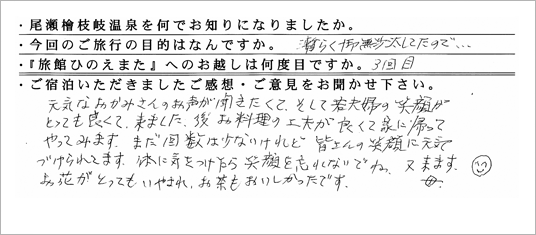 ・尾瀬檜枝岐温泉を何でお知りになりましたか。
・今回のご旅行の目的はなんですか。 暫らく御無沙汰してたので…
・『旅館ひのえまた』へのお越しは何度目ですか。 3回目
・ご宿泊いただきましたご感想・ご意見をお聞かせ下さい。
元気なおかみさんのお声が聞きたくて、そして若夫婦の笑顔が
とっても良くて、来ました。後お料理の工夫が良くて家に帰って
やってみます。まだ回数は少ないけれど 皆さんの笑顔に元気
づけられてます。体に気をつけたら笑顔を忘れないでね。又来ます。
お花がとってもいやされ、お茶もおいしかったです。